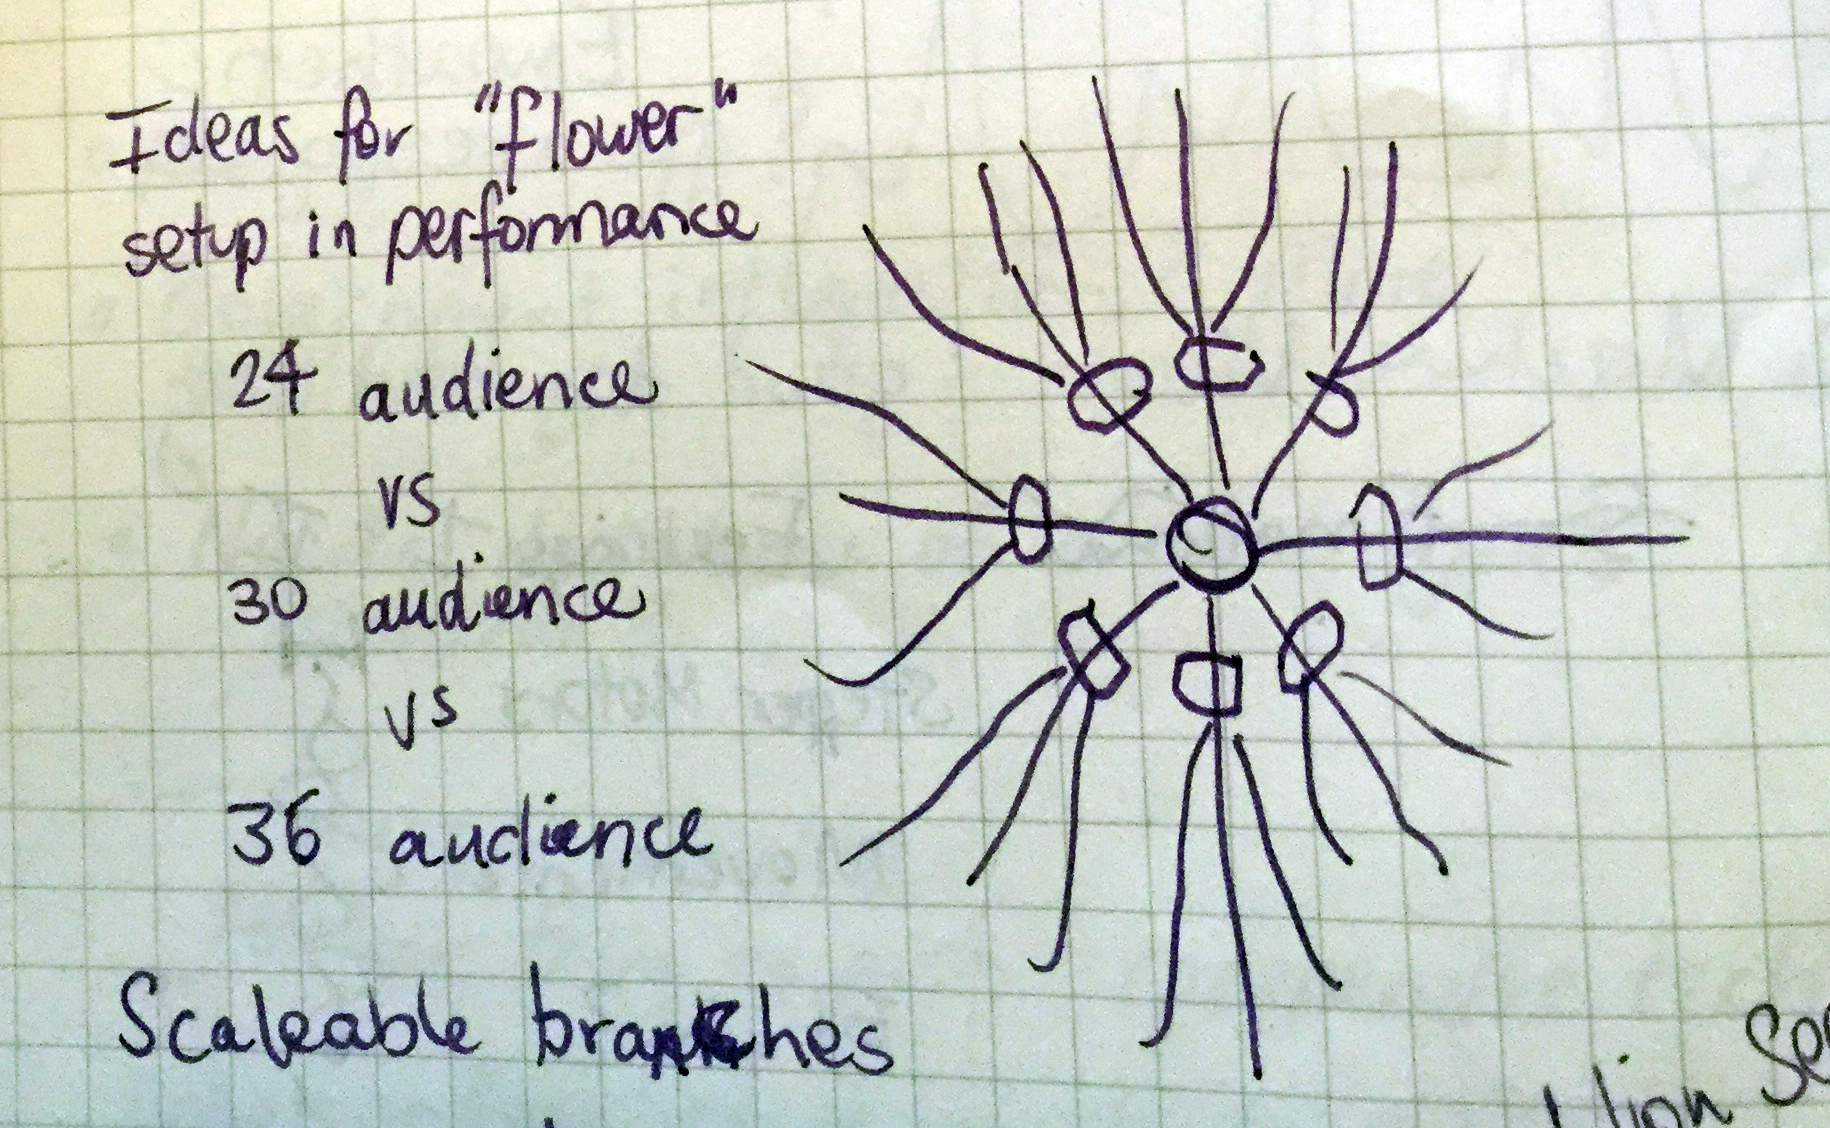 Ideas for "flower"
setup in performance
24 audience
vs
30 audience
vs
36 audience
Scaleable branches